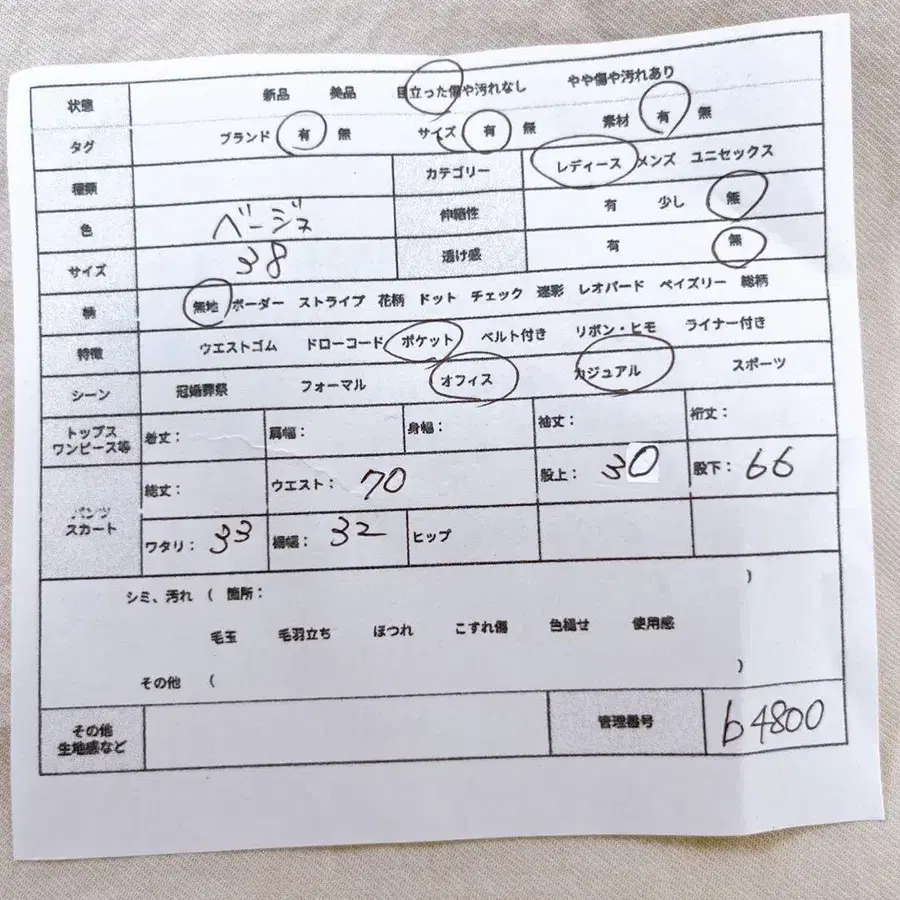 状態 新品 美品 目立った傷や汚れなし やや傷や汚れあり
タグ ブランド 有 無 サイズ 有 無 素材 有 無
種類 カテゴリー レディース メンズ ユニセックス
色 ベージュ 伸縮性 有 少し 無
サイズ 38 透け感 有 無
柄 無地 ボーダー ストライプ 花柄 ドット チェック 迷彩 レオパード ペイズリー 総柄
特徴 ウエストゴム ドローコード ポケット ベルト付き リボン・ヒモ ライナー付き
シーン 冠婚葬祭 フォーマル オフィス カジュアル スポーツ
トップス
ワンピース等 着丈: 肩幅: 身幅: 袖丈: 裄丈:
パンツ
スカート 総丈: ウエスト: 70 股上: 30 股下: 66
ワタリ: 33 裾幅: 32 ヒップ
シミ、汚れ ( 箇所: )
毛玉 毛羽立ち ほつれ こすれ傷 色褪せ 使用感
その他 ( )
その他
生地感など 管理番号 b4800